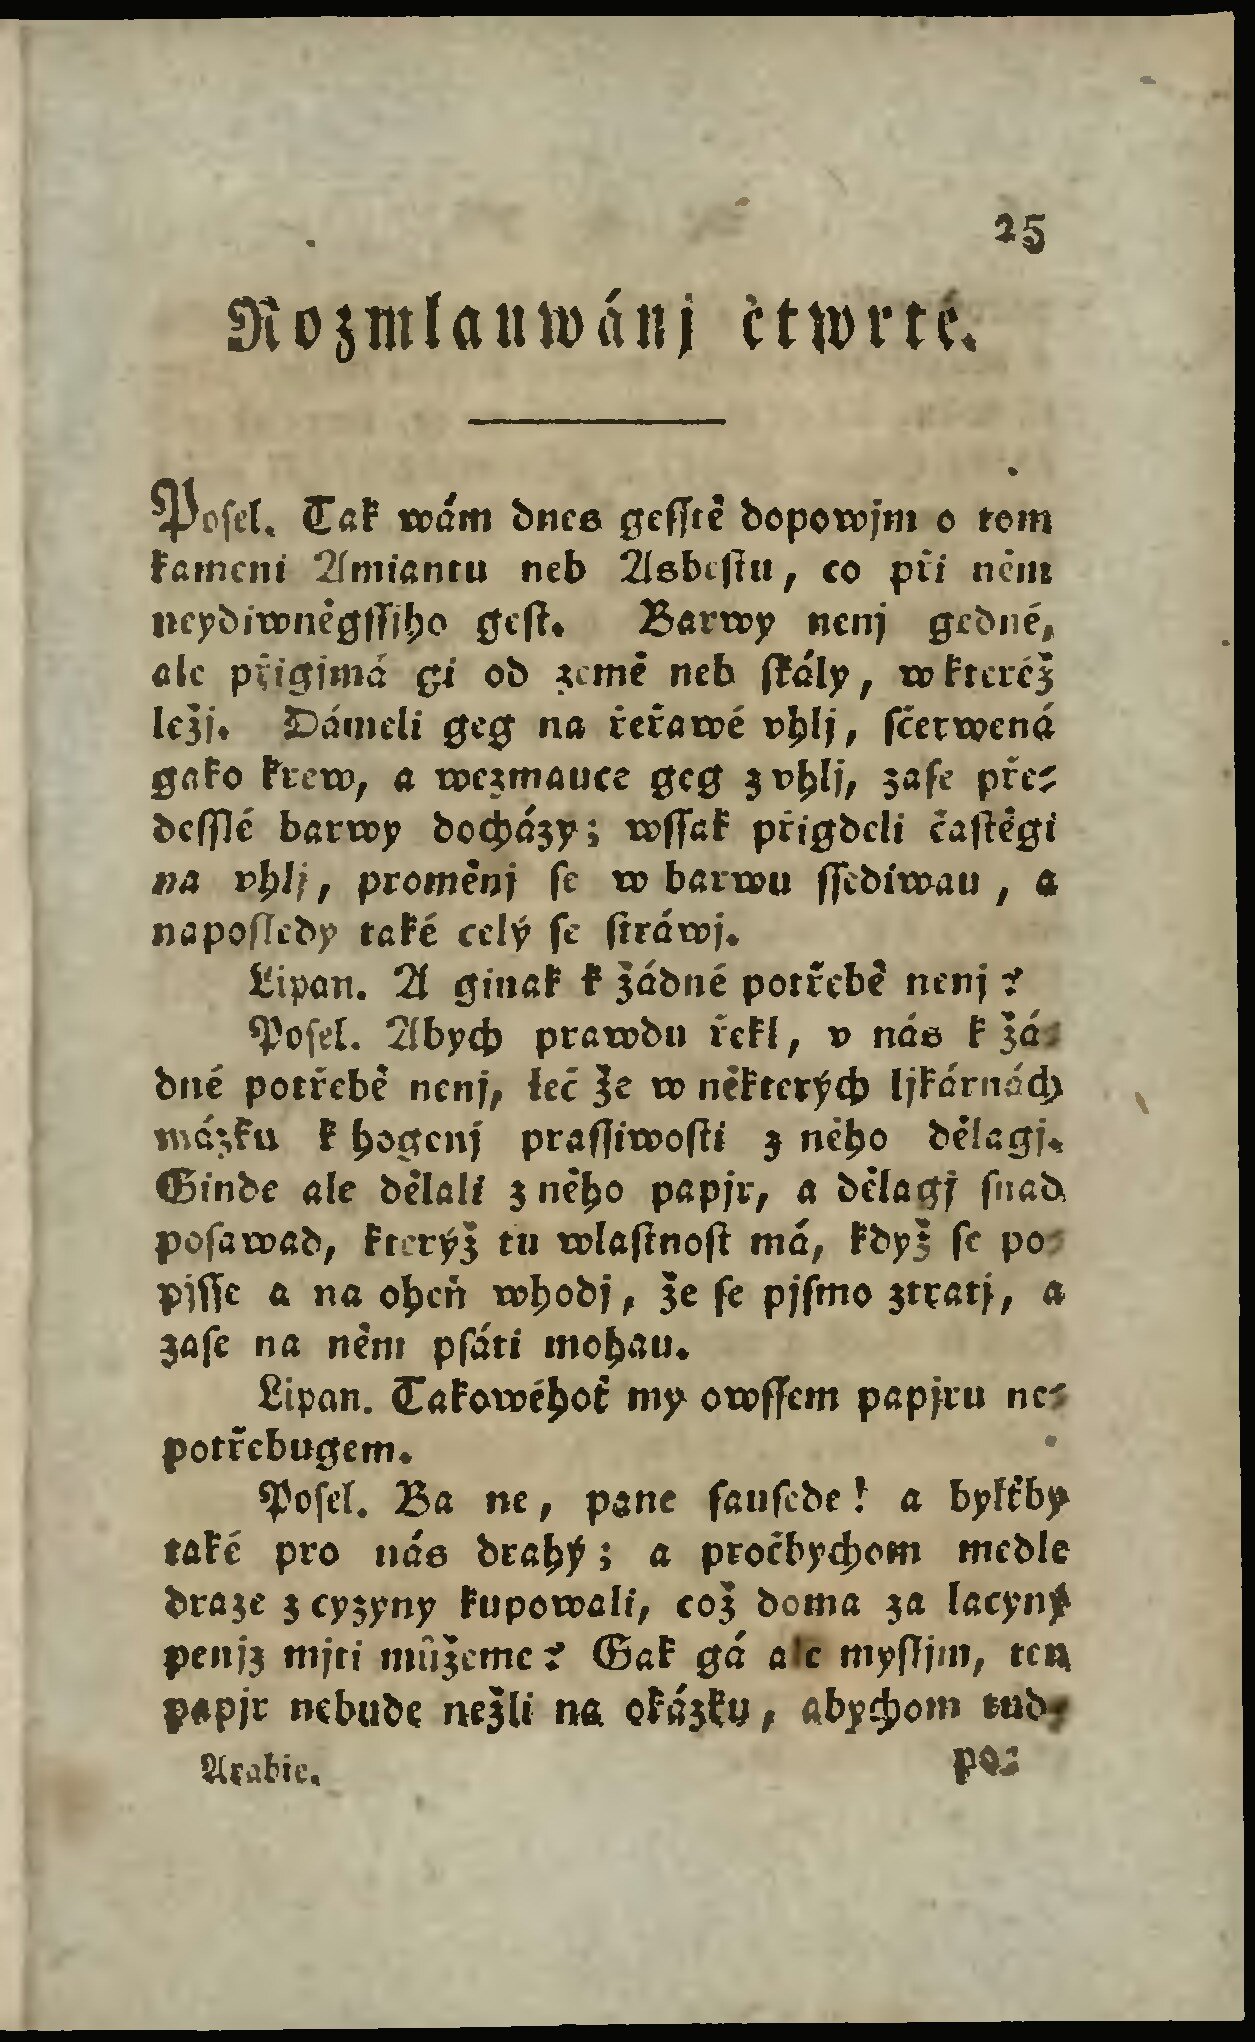 25
Rozmlauwánj čtwrté.
Posel. Tak wám dnes gesstě dopowjm o tom
kameni Amiantu neb Asbestu, co při něm
neydiwněgssjho gest. Barwy nenj gedné,
ale přigjmá gi od země neb skály, w kteréž
ležj. Dámeli geg na řeřawé vhlj, sčerwená
gako krew, a wezmauce geg z vhlj, zase pře-
desslé barwy docházy; wssak přigdeli častěgi
na vhlj, proměnj se w barwu ssediwau, a
naposledy také celý se stráwj.
Lipan. A ginak k žádné potřebě nenj?
Posel. Abych prawdu řekl, v nás k žá-
dné potřebě nenj, leč že w některých ljkárnách
mázku k hogenj prassiwosti z něho dělagj.
Ginde ale dělali z něho papjr, a dělagj snad
posawad, kterýž tu wlastnost má, když se po-
pjsse a na oheň whodj, že se pjsmo ztratj, a
zase na něm psáti mohau.
Lipan. Takowéhoť my owssem papjru ne-
potřebugem.
Posel. Ba ne, pane sausede! a bylťby
také pro nás drahý; a pročbychom medle
draze z cyzyny kupowali, což doma za lacyný
penjz mjti můžeme? Gak gá ale mysljm, ten
papjr nebude nežli na okázku, abychom tud-
Arabie. po-